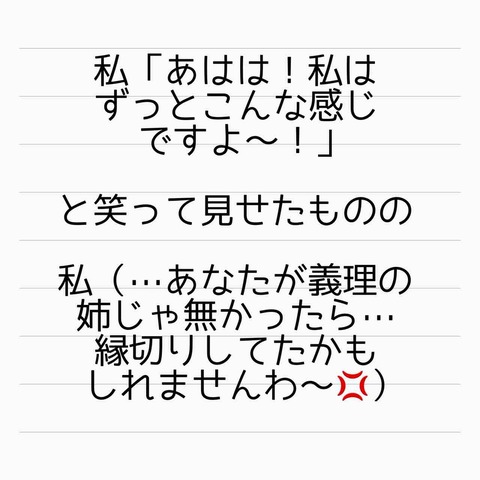 私「あはは！私は
ずっとこんな感じ
ですよ〜！」
と笑って見せたものの
私（…あなたが義理の
姉じゃ無かったら…
縁切りしてたかも
しれませんわ〜💢）